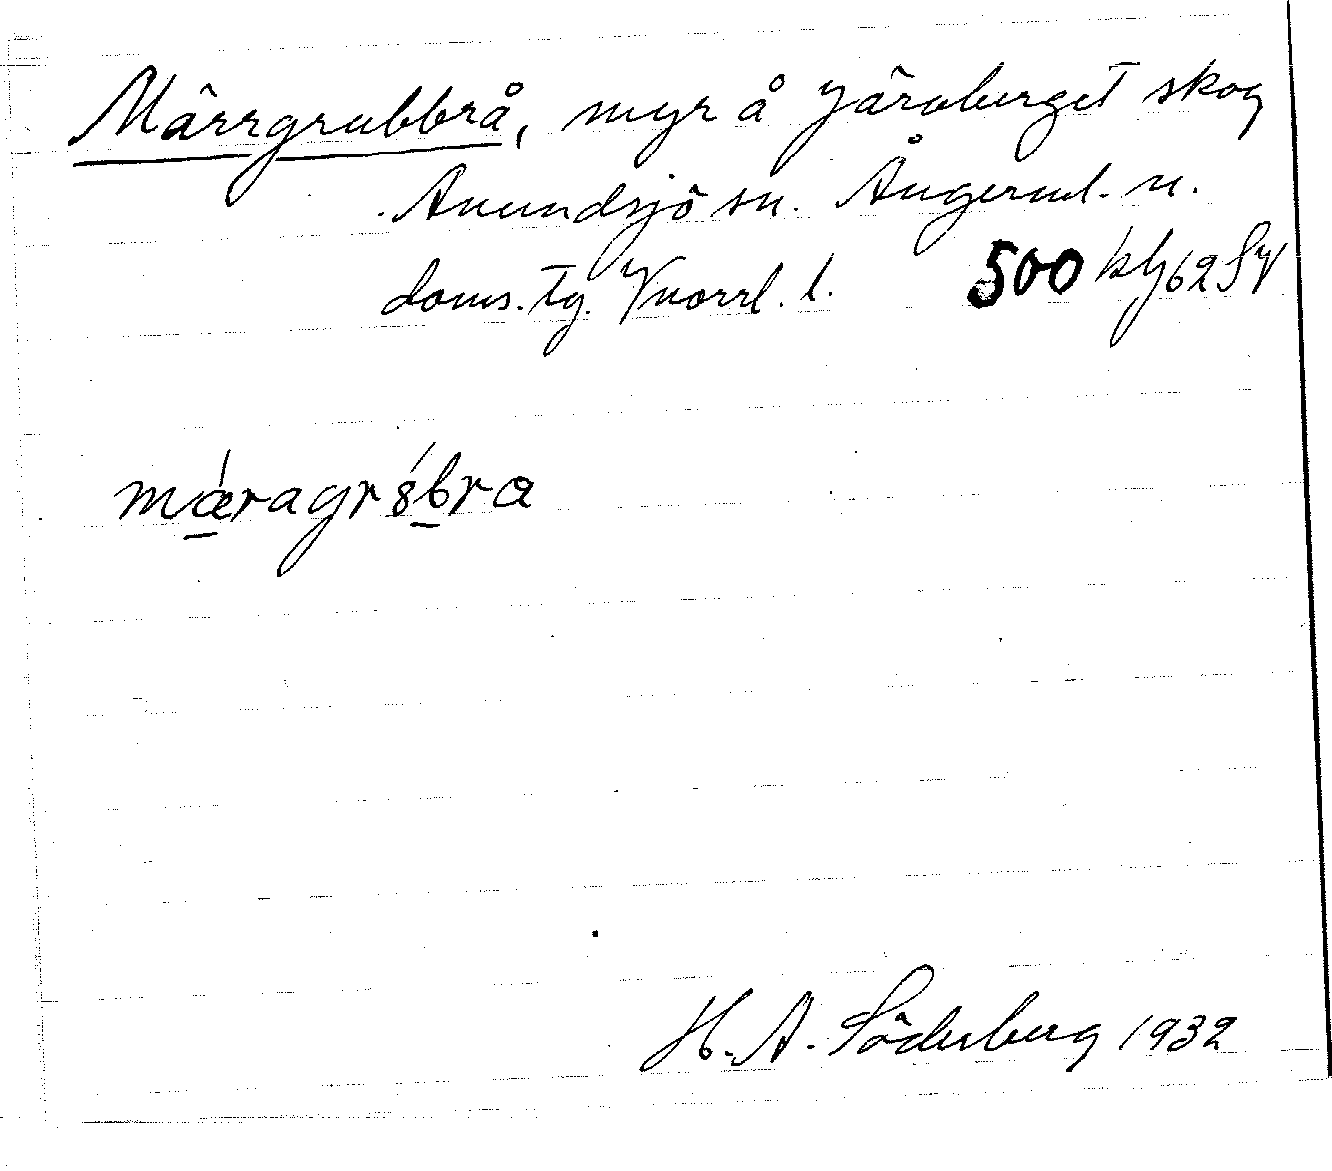 Märrgrubbrå, myr å Järoberget skog
Anundsjö sn. Ångerml. n.
doms. tg. Vnorrl. l. 500 kbj62SV
mǽragrúbra
H. A. Söderberg 1932